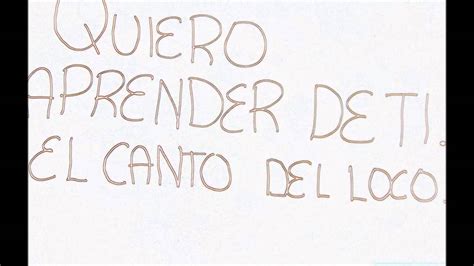 QUIERO
APRENDER DE TI.
EL CANTO DEL LOCO.